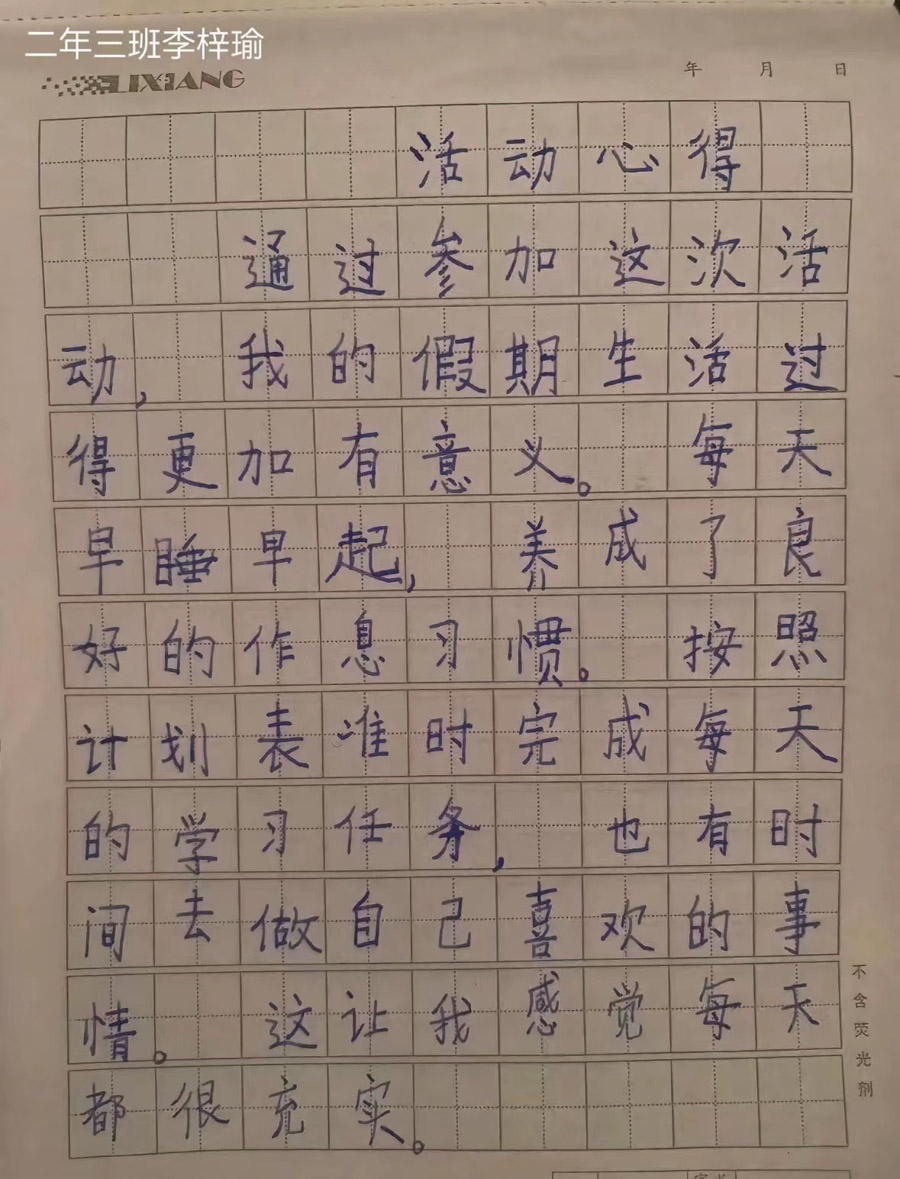 二年三班李梓瑜
LIXIANG
年 月 日
活动心得
通过参加这次活
动，我的假期生活过
得更加有意义。每天
早睡早起，养成了良
好的作息习惯。按照
计划表准时完成每天
的学习任务，也有时
间去做自己喜欢的事
情。这让我感觉每天
都很充实。
不含荧光剂